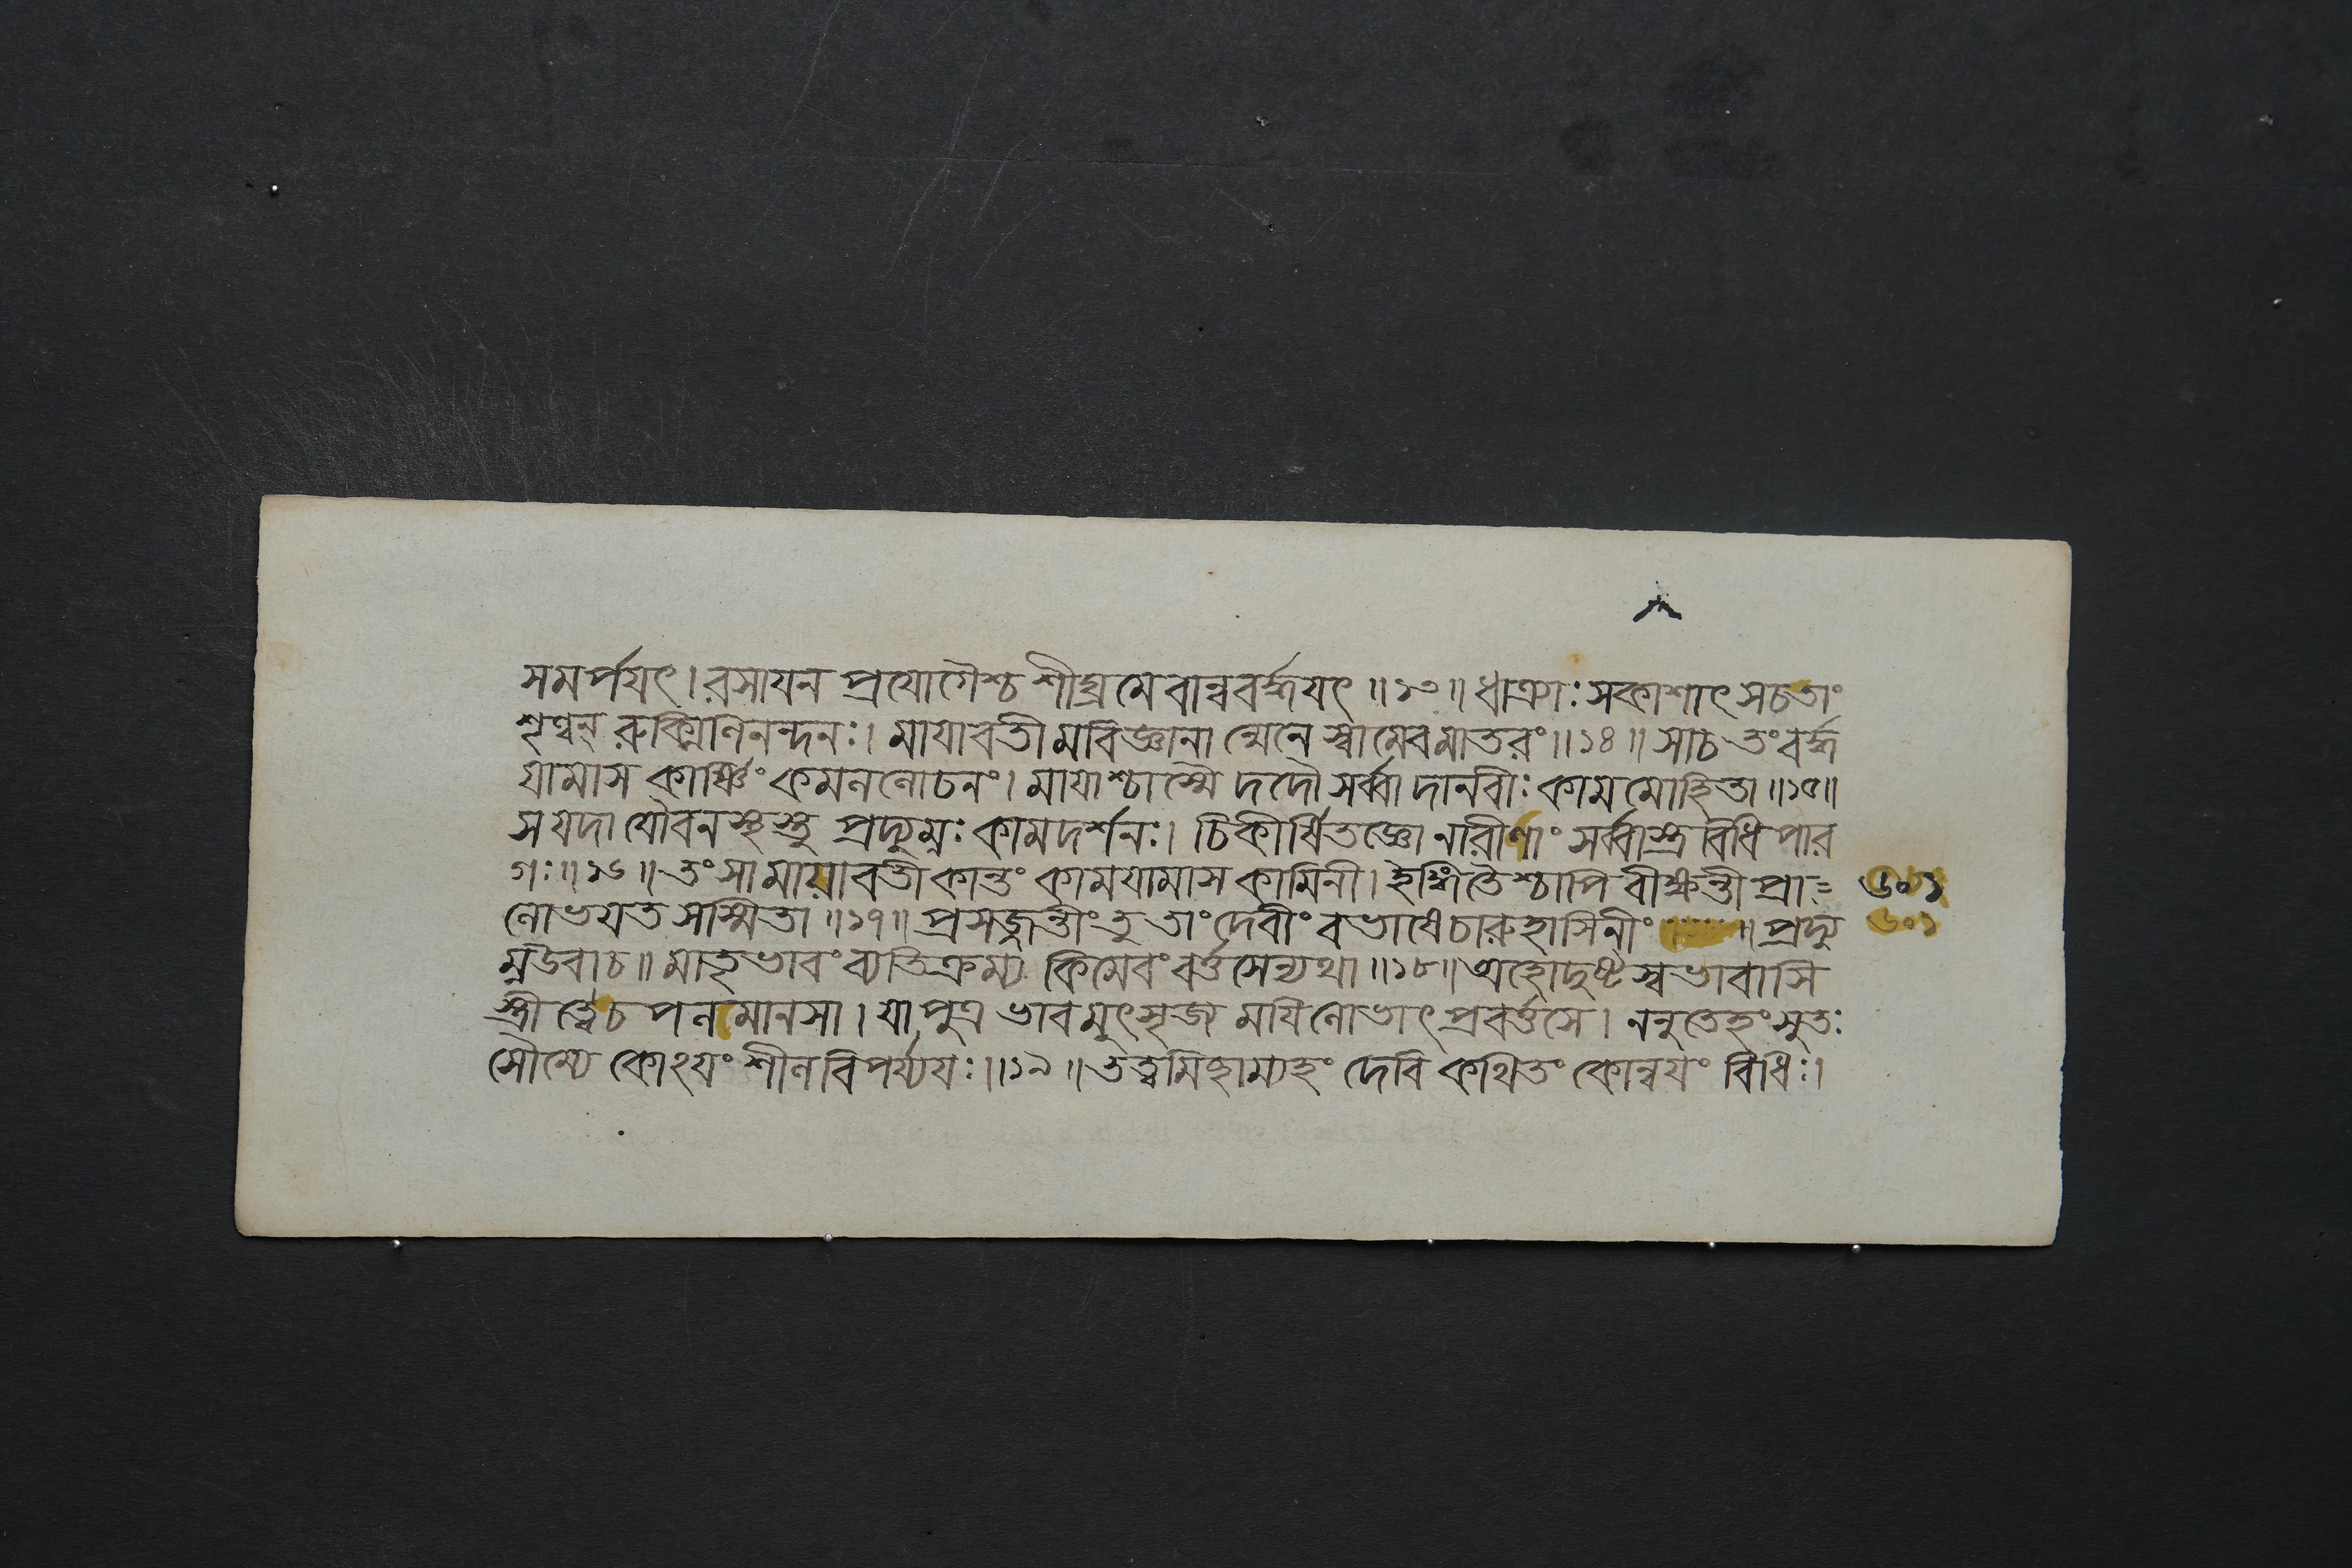 সমর্পযৎ। রসাযন প্রযোগৈশ্চ শীঘ্রমেবান্ববর্দ্ধযৎ ॥১৩॥ ধাত্র্যাঃ সকাশাৎ সচতাং
শৃণ্বন্ রুক্মিণিনন্দনঃ। মাযাবতীমবিজ্ঞানান্মেনে স্বামেবমাতরং॥১৪॥ সাচ তংবর্দ্ধ
যামাস কার্ষ্ণিং কমললোচনং। মাযাশ্চাস্মৈ দদৌ সর্ব্বা দানবীঃ কামমোহিতা॥১৫॥
স যদা যৌবনস্থস্তু প্রদ্যুম্নঃ কামদর্শনঃ। চিকীর্ষিতজ্ঞো নারীণাং সর্ব্বাস্ত্র বিধি পার
গঃ॥১৬॥ তং সা মাযাবতী কান্তং কামযামাস কামিনী। ইঙ্গিতৈশ্চাপি বীক্ষন্তী প্রা= ৬০১
লোভযত সস্মিতা॥১৭॥ প্রসজ্জন্তীং তু তাং দেবীং বভাষে চারুহাসিনীং ॥ প্রদ্যু ৬০১
ম্নউবাচ॥ মাতৃভাবং ব্যতিক্রম্য কিমেবং বর্ত্তসেন্যথা॥১৮॥ অহোদুষ্টস্বভাবাসি
স্ত্রীত্বেচ পলমানসা। যা পুত্র ভাবমুৎসৃজ্য মযিলোভাৎ প্রবর্ত্তসে। ননুতেহং সুতঃ
সৌম্যে কোঽযং শীলবিপর্য্যযঃ॥১৯॥ তত্ত্বমিচ্ছাম্যহং দেবি কথিতং কোন্বযং বিধিঃ।